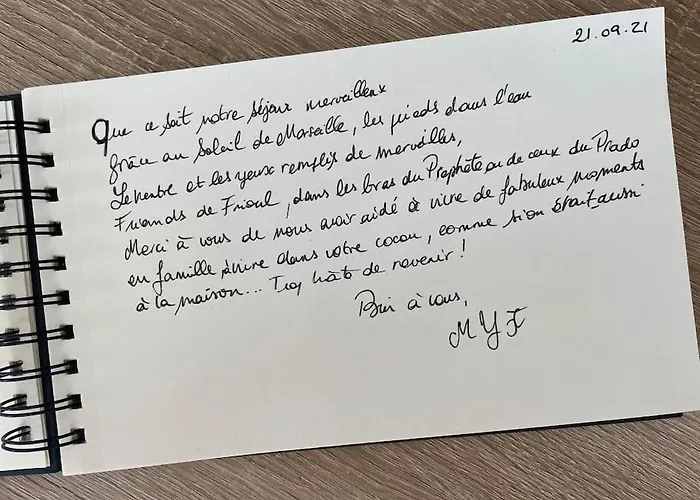 21.09.21
Que ce soit notre séjour merveilleux
grâce au Soleil de Marseille, les pieds dans l'eau
Le ventre et les yeux remplis de merveilles,
Friands de Frioul, dans les bras du Prophète ou de ceux du Prado
Merci à vous de nous avoir aidé à vivre de fabuleux moments
en famille, à vivre dans votre cocon, comme si on était aussi
à la maison... Trop hâte de revenir !
à vous,
M Y F